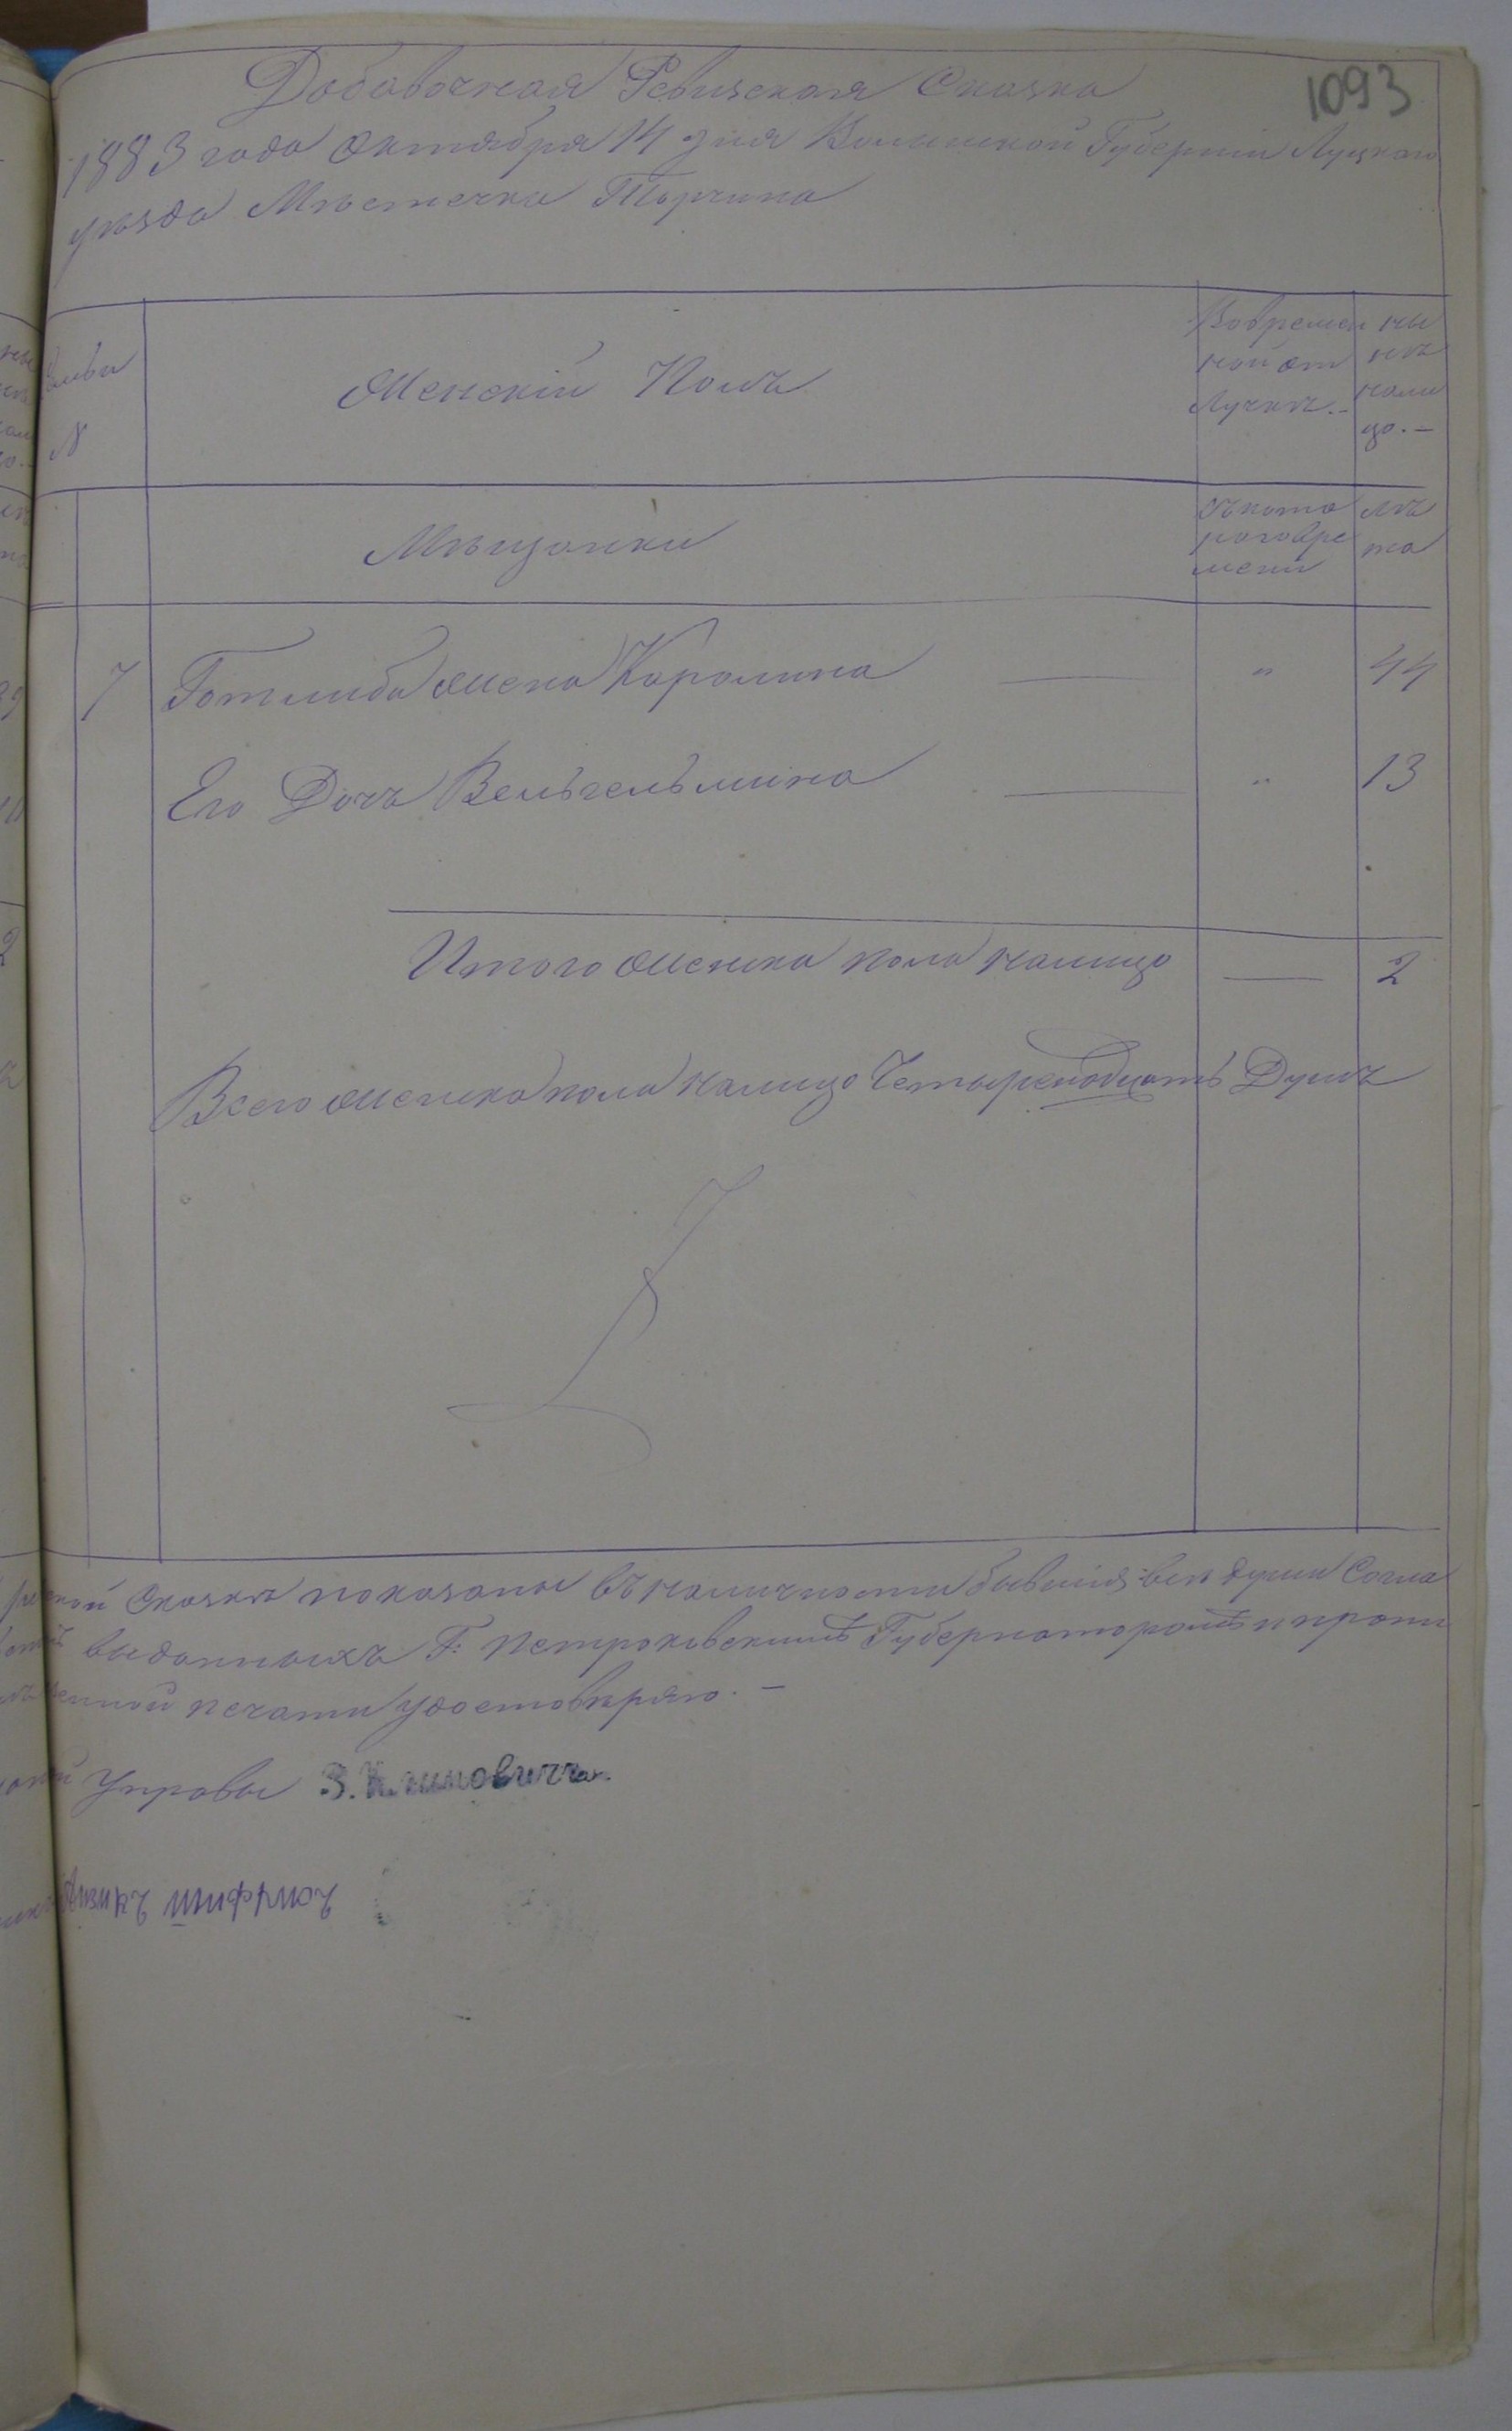 1093
Добавочная Ревизская Сказка
1883 года Октября 14 дня Волынской Губернии Луцкаго
уѣзда Мѣстечка Торчина
№
Женскій Полъ
Вовремен
ной от
Лучкѣ.-
ны
нѣ
нали
цо.-
Мѣщанки
Съкото
раговре
мени
лѣ
та
7 Готлиба жена Каролина — " 44
Его Дочь Вельгельмина — " 13
Итого женска пола налицо — 2
Всего женска пола налицо Четыренадцать Душъ
Сказкѣ показаны въ наличности бывшия все души Согла
выданныхъ Г: Петроковскимъ Губернаторомъ и проти
печати удостовѣряю.-
Управы З. Климовичъ
Айзикъ Шифрисъ